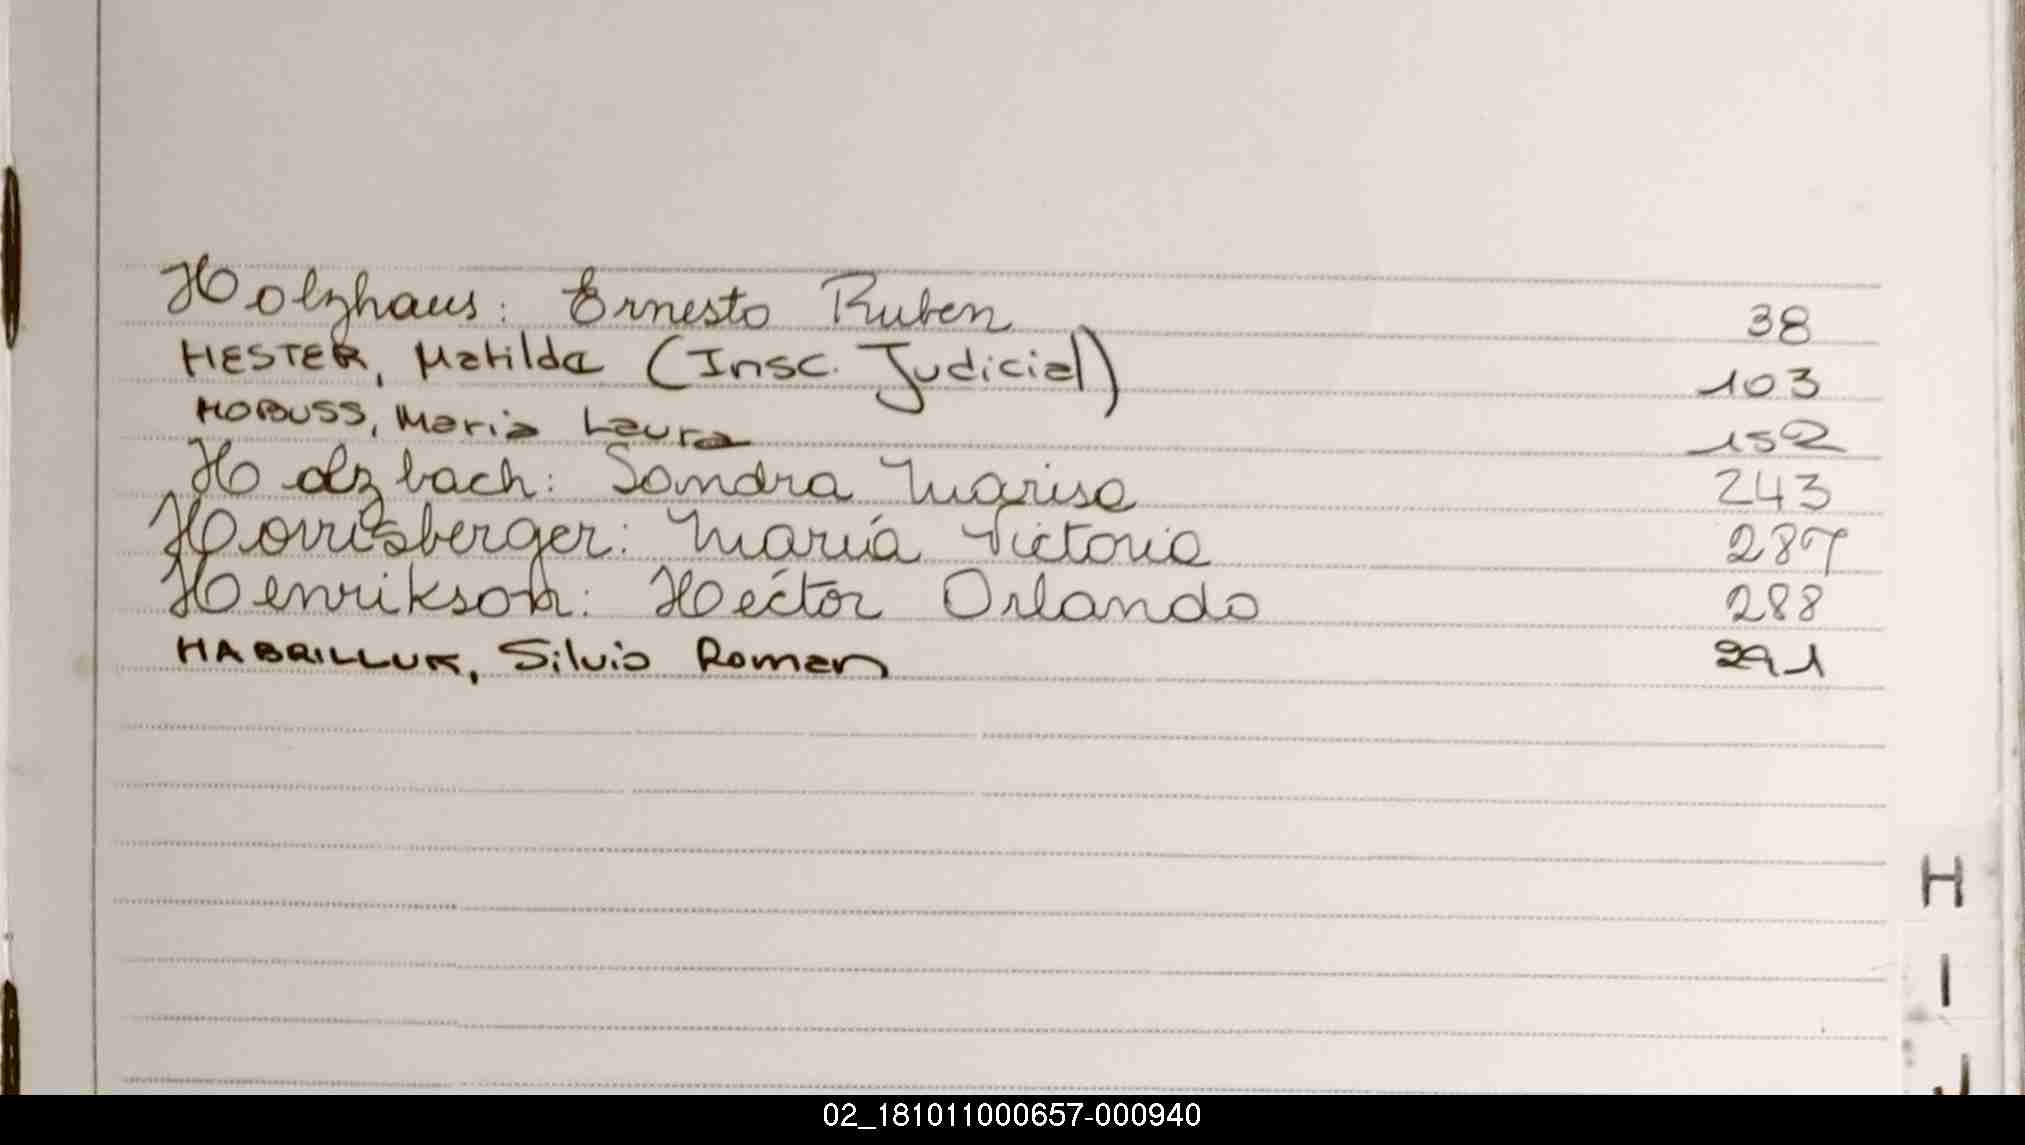 Holzhaus: Ernesto Ruben 38
HESTER, Matilda (Insc. Judicial) 103
HOBUSS, Maria Laura 152
Holzbach: Sandra Marisa 243
María Victoria 287
Henrikson: Héctor Orlando 288
HABRILLUK, Silvio Roman 291
H
I
J
02_181011000657-000940